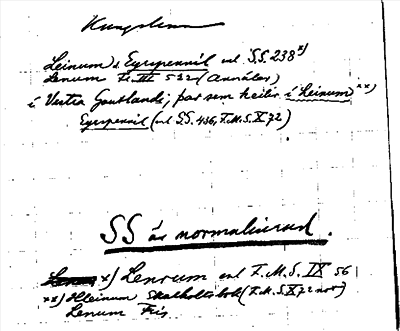 Kungslena
Leinum, Eyrspennil enl SS. 238 x)
Lenum Fl. III 532 (Annáler)
í Vestra Gautlandi; þar sem heitir í Leinum xx)
Eyrspennil (enl SS. 486, F.M.S. X 72)
SS är normaliserad.
x) Lenrum enl F.M.S. IX 56
xx) Hleinum Skalholtsbok (F.M.S. X 72 not)
Lenum Fris